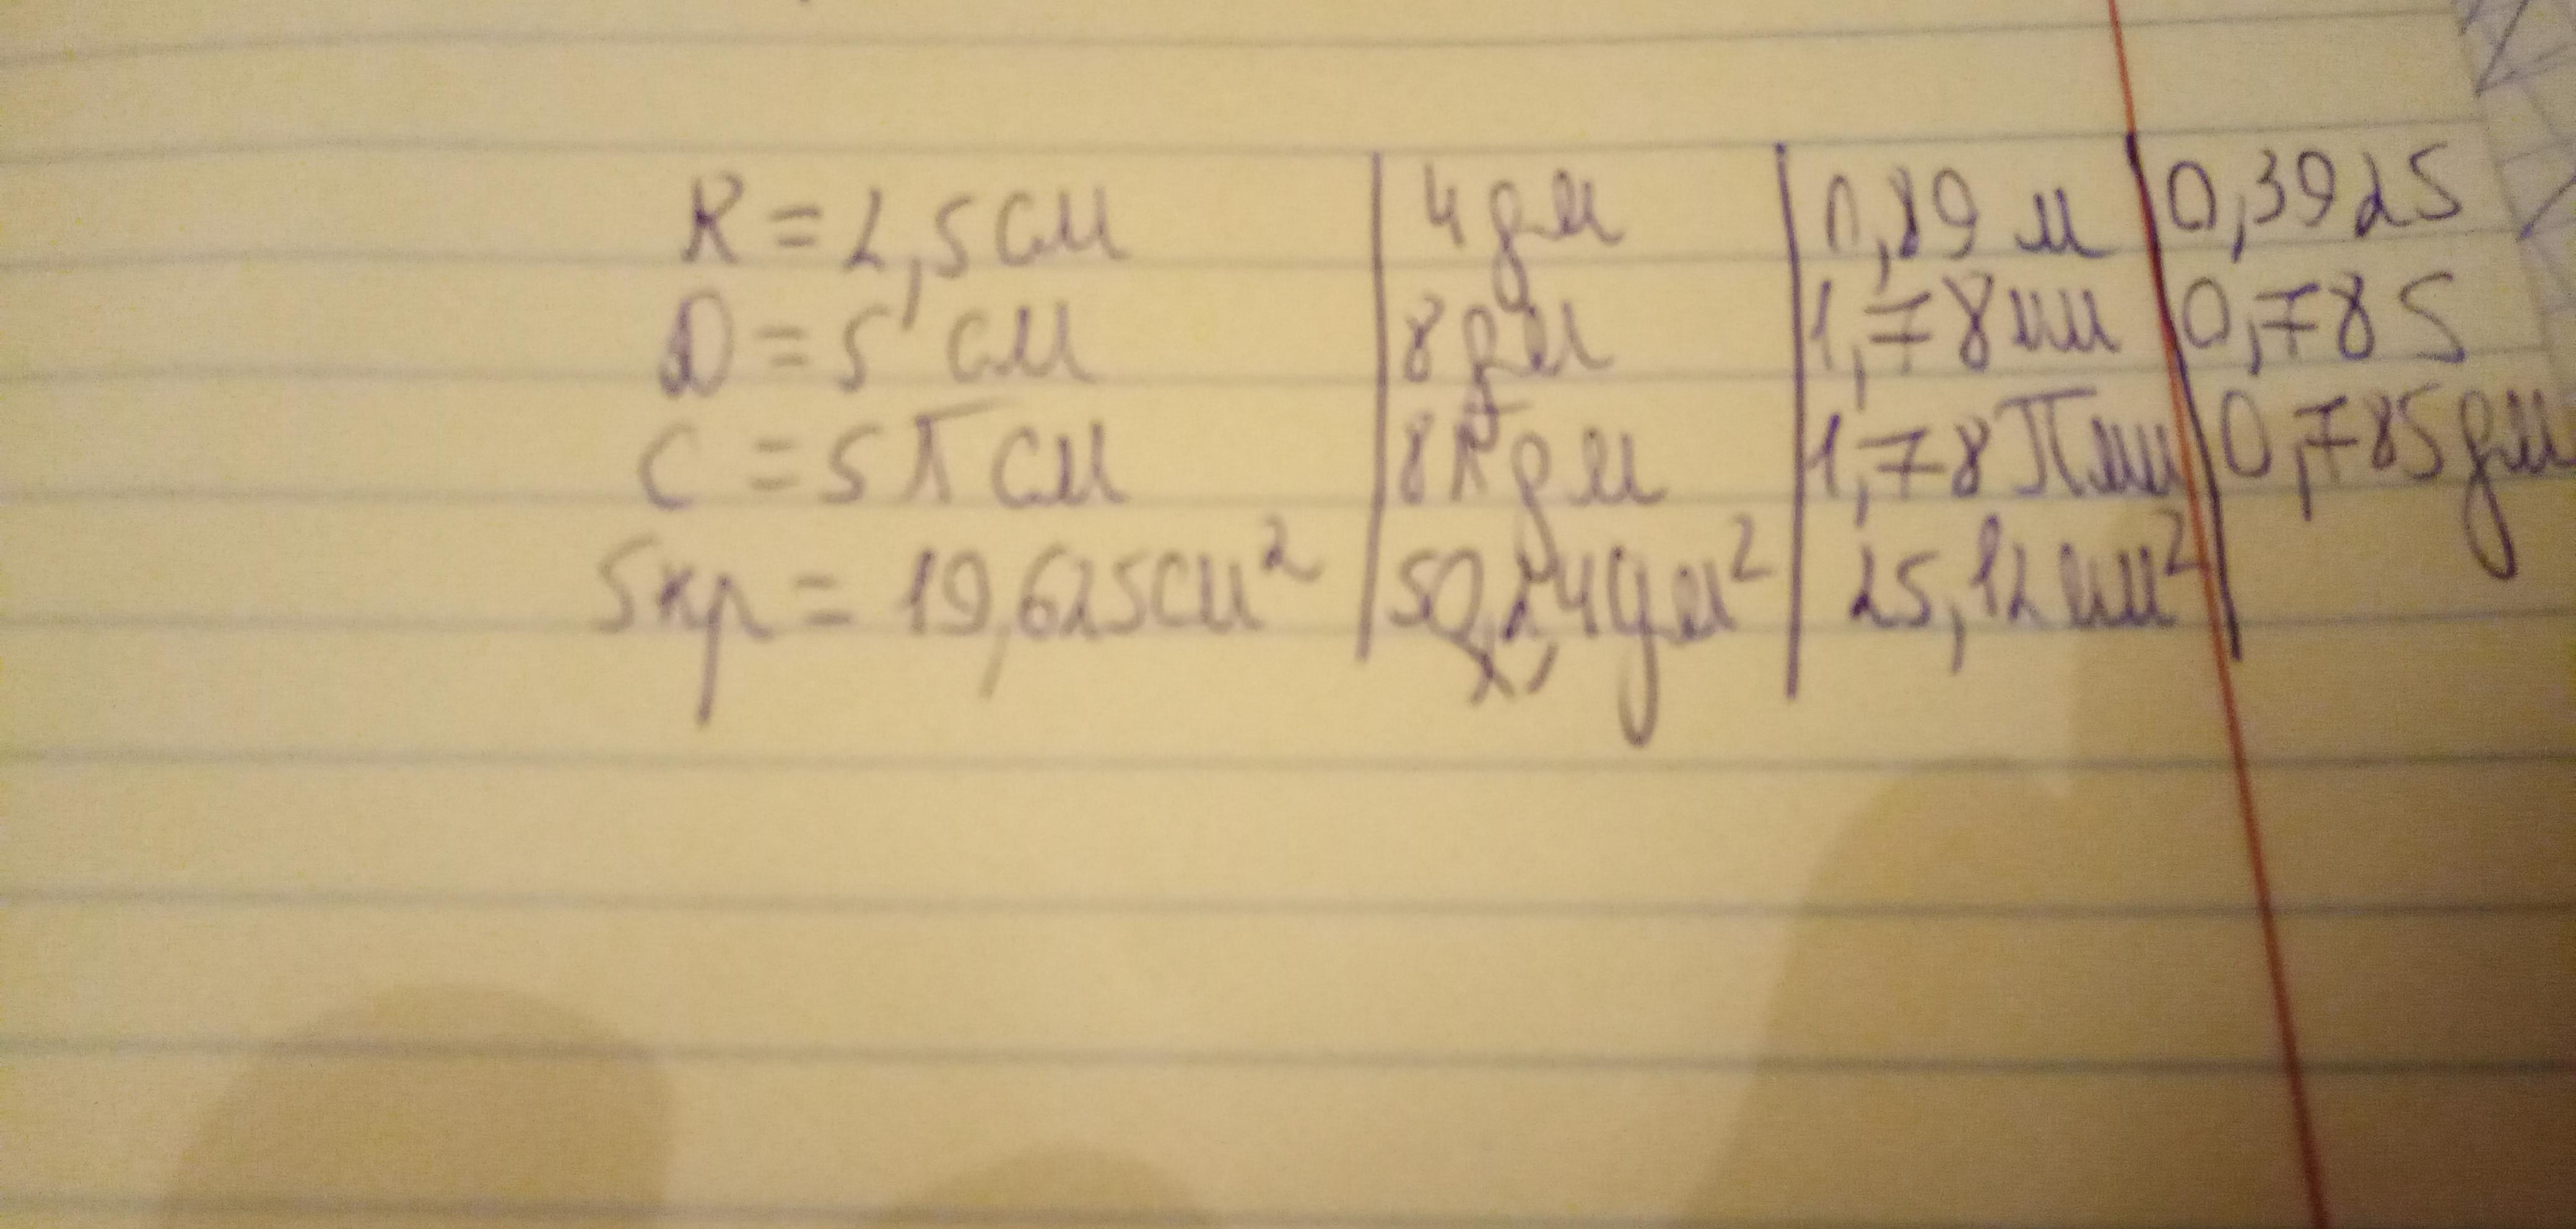 R = 2,5 см | 4 дм | 0,89 м | 0,3925
D = 5 см | 8 дм | 1,78 мм | 0,785
C = 5π см | 8π дм | 1,78π мм | 0,785 дм
Sкр = 19,625 см² | 50,24 дм² | 25,12 мм²